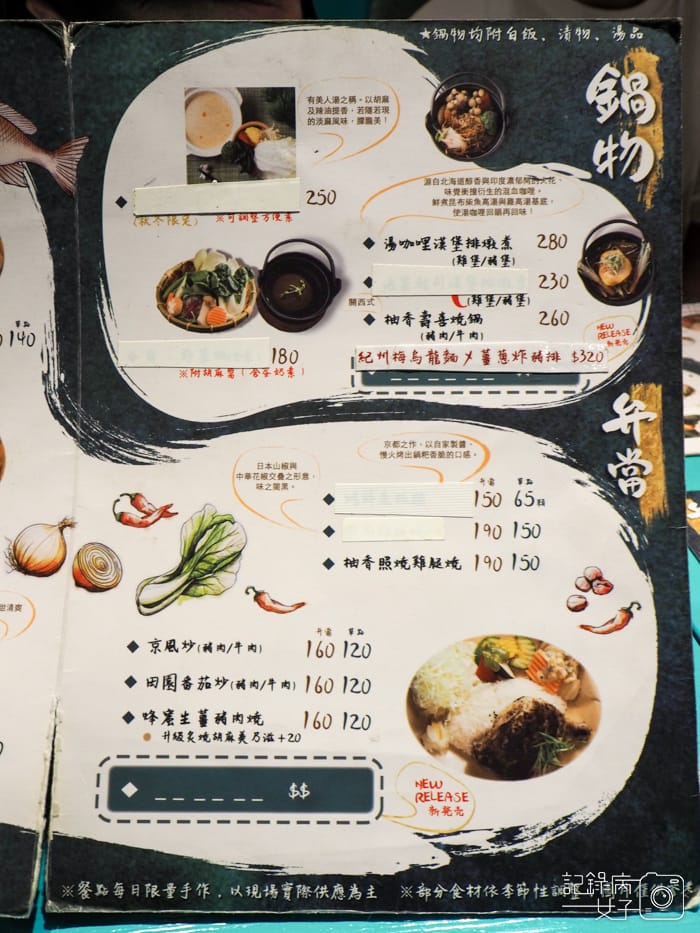 ★鍋物均附白飯、漬物、湯品
鍋物
有美人湯之稱。以胡麻
及辣油提香，若隱若現
的淡麻風味，讚飄美！
250
(秋冬限定) ※可調整方便素
源自北海道醇香與印度濃郁間的火花，
味覺衝撞衍生的混血咖哩。
鮮煮昆布柴魚高湯與雞高湯基底，
使湯咖哩回韻再回味！
◆ 湯咖哩漢堡排燉煮 280
(雞堡/豬堡)
◆ 230
(雞堡/豬堡)
關西式
◆ 柚香壽喜燒鍋 260
(豬肉/牛肉)
NEW
RELEASE
新発売
180
※附胡麻醬(含蛋奶素)
紀州梅烏龍麵 × 薑蔥炸豬排 $320
單點
140
弁當
京都之作，以自家製醬，
慢火烤出鍋粑香脆的口感。
日本山椒與
中華花椒交疊之形意，
味之闇黑。
弁當 單點
◆ 150 65/顆
◆ 190 150
◆ 柚香照燒雞腿燒 190 150
弁當 單點
◆ 京風炒(豬肉/牛肉) 160 120
◆ 田園番茄炒(豬肉/牛肉) 160 120
◆ 蜂蜜生薑豬肉燒 160 120
● 升級炙燒胡麻美乃滋+20
◆ _ _ _ _ _ _ $$
NEW
RELEASE
新発売
※餐點每日限量手作，以現場實際供應為主 ※部分食材依季節性調整
記錄病
女子